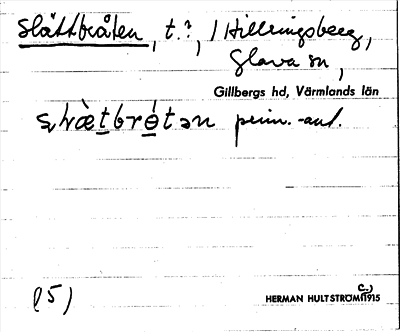 Slåttbråten, t.?, / Hillringsberg,
Glava sn,
Gillbergs hd, Värmlands län
prim.-ant.
(5)
HERMAN HULTSTRÖM (c.) 1915